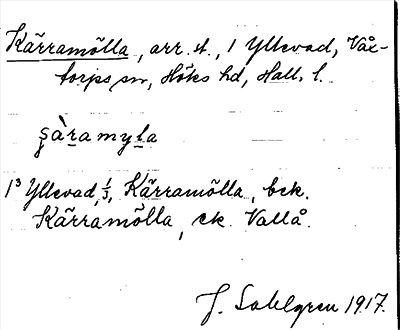 Kärramölla, arr. st., 1 Yllevad, Vår-
torps sn, Höks hd, Hall. l.
şàramyla
1³ Yllevad, ⅓, Kärramölla, bek.
Kärramölla, ek Vallå.
J. Sahlgren 1917.